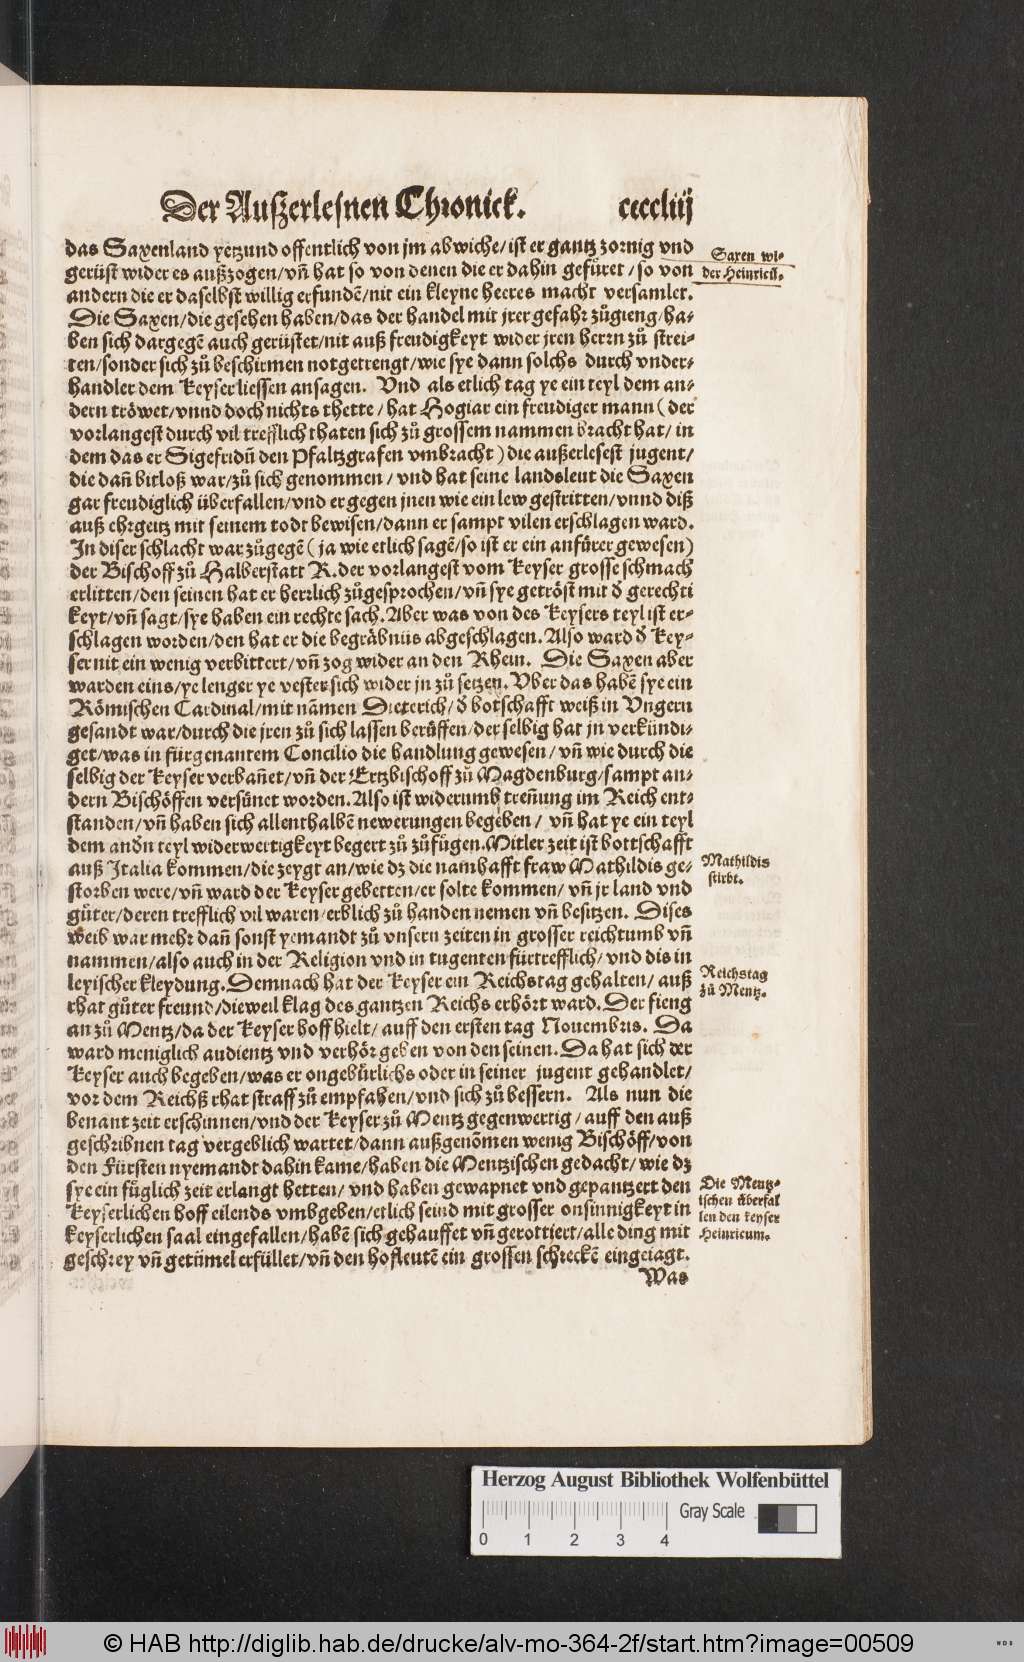 Der Außerleſnen Chronick. ccccliij
das Saxenland yetzund offentlich von jm abwiche/ iſt er gantz zornig vnd
gerüſt wider es außzogen/ vñ hat ſo von denen die er dahin gefüret/ ſo von
andern die er daſelbſt willig erfundē/ nit ein kleyne heeres macht verſamlet.
Saxen wi-
der Heinricū.
Die Saxen/ die geſehen haben/ das der handel mit jrer gefahr zůgieng/ ha-
ben ſich dargegē auch gerüſtet/ nit auß freudigkeyt wider jren herrn zů ſtrei-
ten/ ſonder ſich zů beſchirmen notgetrengt/ wie ſye dann ſolchs durch vnder-
handler dem Keyſer lieſſen anſagen. Vnd als etlich tag ye ein teyl dem an-
dern tröwet/ vnnd doch nichts thette/ hat Hogiar ein freudiger mann (der
vorlangeſt durch vil trefflich thaten ſich zů groſſem nammen bracht hat/ in
dem das er Sigefridū den Pfaltzgrafen vmbracht) die außerleſeſt jugent/
die dañ bitloß war/ zů ſich genommen/ vnd hat ſeine landsleut die Saxen
gar freudiglich überfallen/ vnd er gegen jnen wie ein lew geſtritten/ vnnd diß
auß ehrgeitz mit ſeinem todt bewiſen/ dann er ſampt vilen erſchlagen ward.
In diſer ſchlacht war zůgegē (ja wie etlich ſagē/ ſo iſt er ein anfürer geweſen)
der Biſchoff zů Halberſtatt R. der vorlangeſt vom Keyſer groſſe ſchmach
erlitten/ den ſeinen hat er herrlich zůgeſprochen/ vñ ſye getröſt mit ð gerechti
keyt/ vñ ſagt/ ſye haben ein rechte ſach. Aber was von des Keyſers teyl iſt er-
ſchlagen worden/ den hat er die begräbnüs abgeſchlagen. Alſo ward ð Key-
ſer nit ein wenig verbittert/ vñ zog wider an den Rhein. Die Saxen aber
warden eins/ ye lenger ye veſter ſich wider jn zů ſetzen. Vber das habē ſye ein
Römiſchen Cardinal/ mit nāmen Dieterich/ ð botſchafft weiß in Vngern
geſandt war/ durch die jren zů ſich laſſen berüffen/ der ſelbig hat jn verkündi-
get/ was in fürgenantem Concilio die handlung geweſen/ vñ wie durch die
ſelbig der Keyſer verbañet/ vñ der Ertzbiſchoff zů Magdenburg/ ſampt an-
dern Biſchöffen verſünet worden. Alſo iſt widerumb treñung im Reich ent-
ſtanden/ vñ haben ſich allenthalbē newerungen begeben/ vñ hat ye ein teyl
dem andn teyl widerwertigkeyt begert zů zůfügen. Mitler zeit iſt bottſchafft
auß Italia kommen/ die zeygt an/ wie dz die nambafft fraw Mathildis ge-
ſtorben were/ vñ ward der Keyſer gebetten/ er ſolte kommen/ vñ jr land vnd
Mathildis
ſtirbt.
güter/ deren trefflich vil waren/ erblich zů handen nemen vñ beſitzen. Diſes
weib war mehr dañ ſonſt yemandt zů vnſern zeiten in groſſer reichtumb vñ
nammen/ alſo auch in der Religion vnd in tugenten fürtrefflich/ vnd dis in
leyiſcher kleydung. Demnach hat der Keyſer ein Reichstag gehalten/ auß
rhat gůter freund/ dieweil klag des gantzen Reichs erhört ward. Der fieng
Reichstag
zů Mentz.
an zů Mentz/ da der Keyſer hoff hielt/ auff den erſten tag Nouembris. Da
ward meniglich audientz vnd verhör geben von den ſeinen. Da hat ſich der
Keyſer auch begeben/ was er ongebürlichs oder in ſeiner jugent gehandlet/
vor dem Reichß rhat ſtraff zů empfahen/ vnd ſich zů beſſern. Als nun die
benant zeit erſchinnen/ vnd der Keyſer zů Mentz gegenwertig/ auff den auß
geſchribnen tag vergeblich wartet/ dann außgenōmen wenig Biſchöff/ von
den Fürſten nyemandt dahin kame/ haben die Mentziſchen gedacht/ wie dz
ſye ein füglich zeit erlangt hetten/ vnd haben gewapnet vnd gepantzert den
Keyſerlichen hoff eilends vmbgeben/ etlich ſeind mit groſſer onſinnigkeyt in
keyſerlichen ſaal eingefallen/ habē ſich gehauffet vñ gerottiert/ alle ding mit
geſchrey vñ getümel erfüllet/ vñ den hofleutē ein groſſen ſchreckē eingejagt.
Die Mentz-
iſchen überfal
len den keyſer
Heinricum.
Was
Herzog August Bibliothek Wolfenbüttel
Gray Scale
0 1 2 3 4
© HAB http://diglib.hab.de/drucke/alv-mo-364-2f/start.htm?image=00509